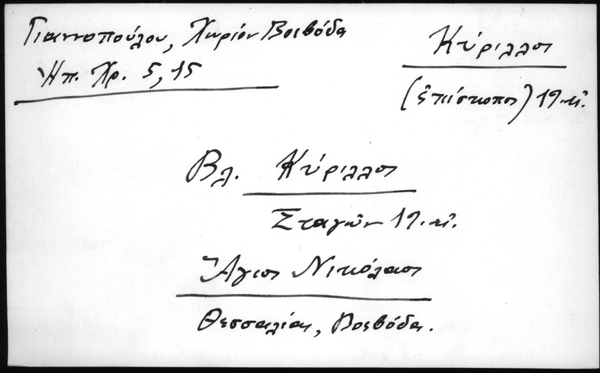 Γιαννοπούλου, Χωρίον Βοεβόδα
Ἠπ. Χρ. 5, 15
Κύριλλος
(ἐπίσκοπος) 19. αἰ.
Βλ. Κύριλλος
Σταγῶν 19. αἰ.
Ἅγιος Νικόλαος
Θεσσαλίας, Βοεβόδα.